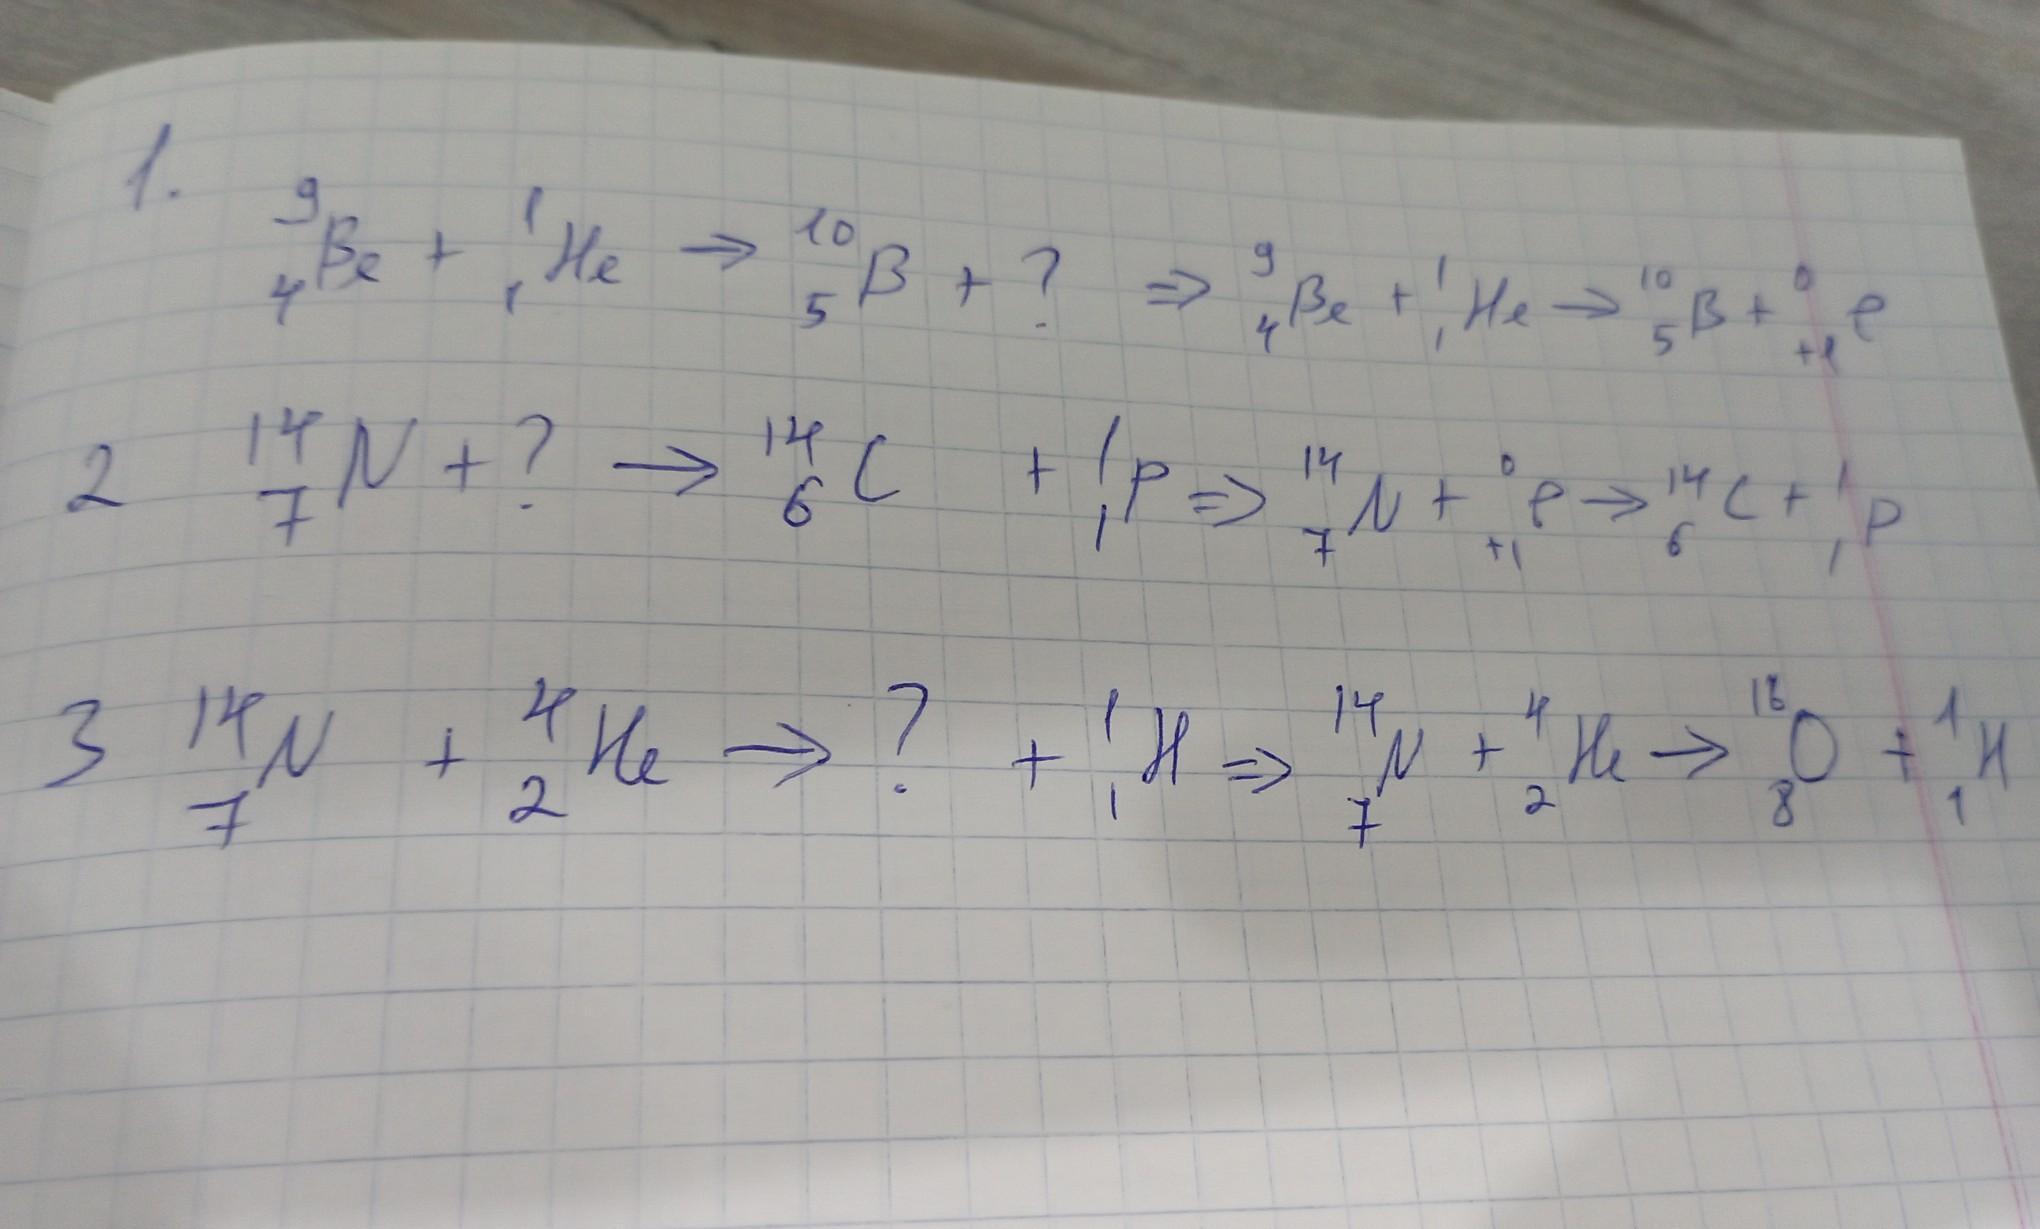 1. ⁹₄Be + ¹₁He → ¹⁰₅B + ? ⇒ ⁹₄Be + ¹₁He → ¹⁰₅B + ⁰₊₁e
2 ¹⁴₇N + ? → ¹⁴₆C + ¹₁p ⇒ ¹⁴₇N + ⁰₊₁e → ¹⁴₆C + ¹₁p
3 ¹⁴₇N + ⁴₂He → ? + ¹₁H ⇒ ¹⁴₇N + ⁴₂He → ¹⁸₈O + ¹₁H